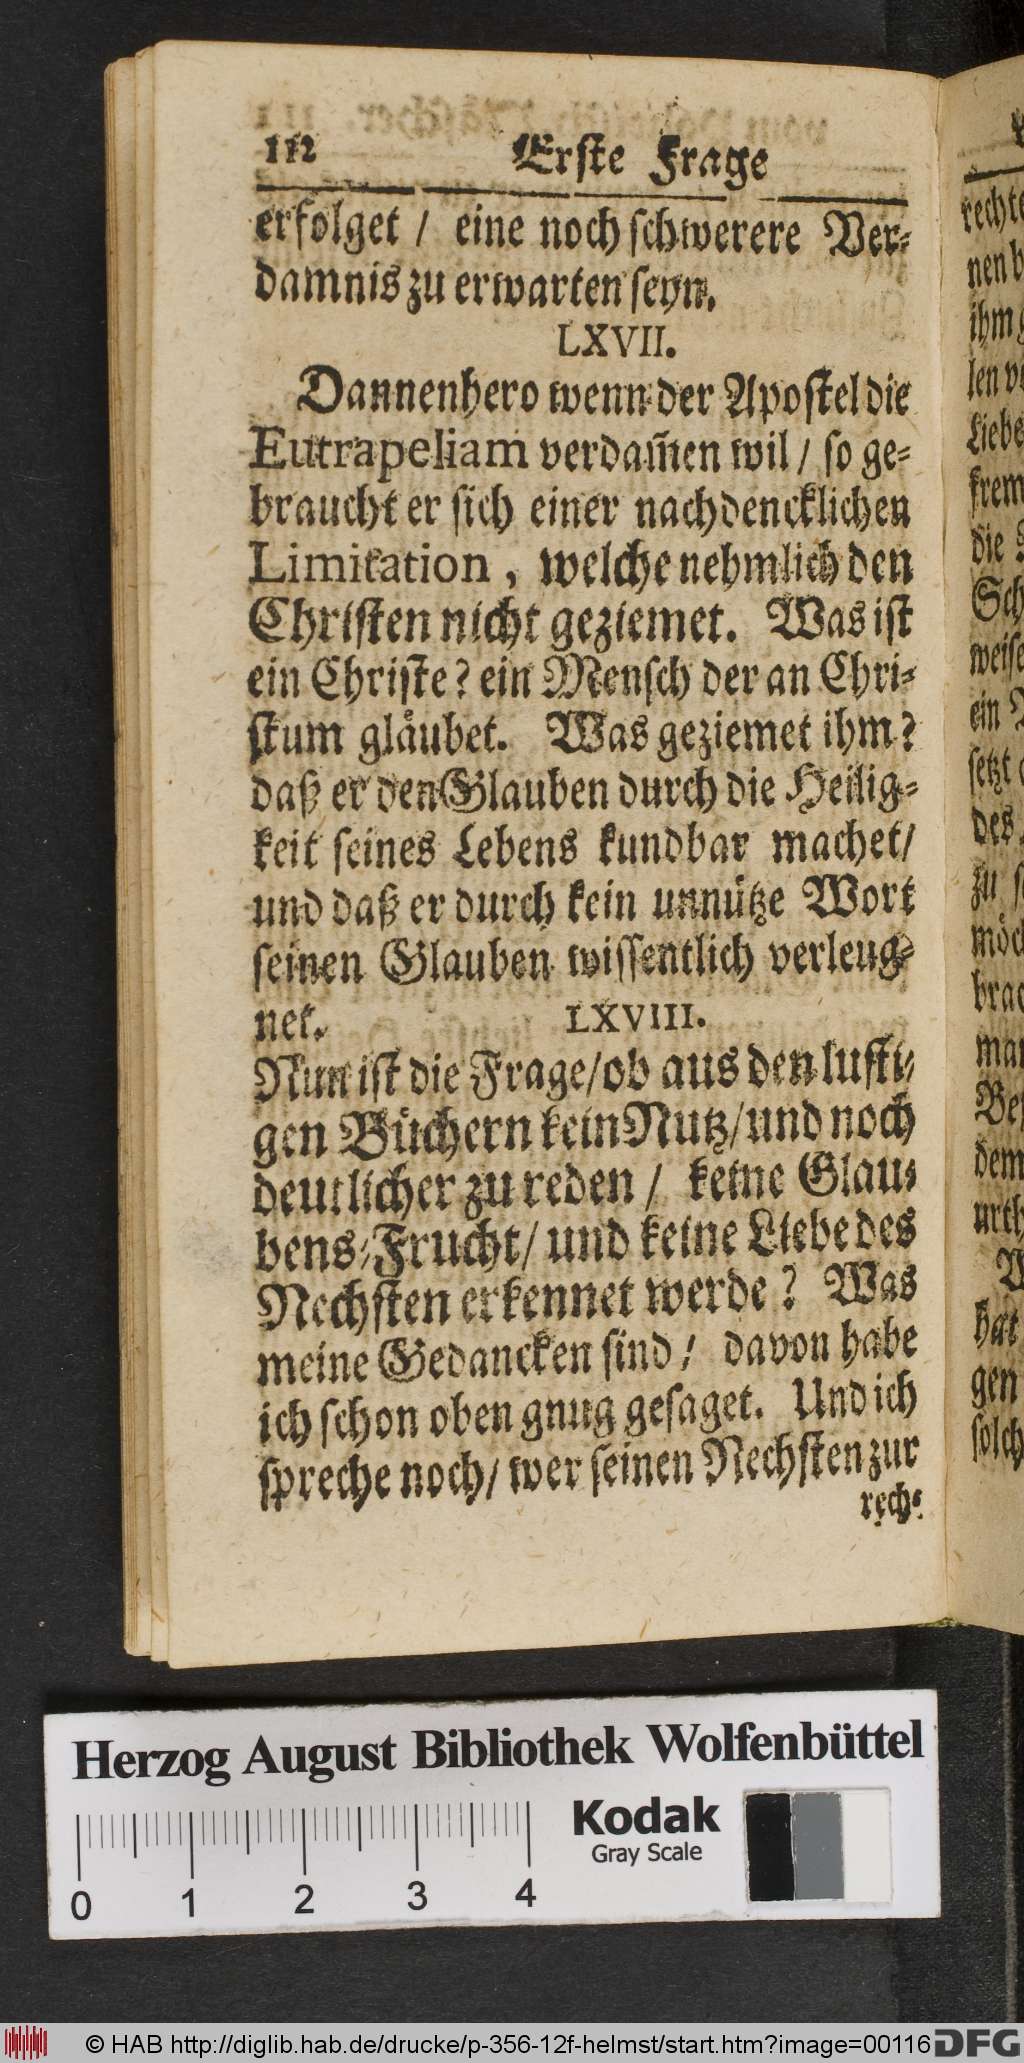 112 Erste Frage
erfolget / eine noch schwerere Ver-
damnis zu erwarten seyn.
LXVII.
Dannenhero wenn der Apostel die
Eutrapeliam verdam̃en wil / so ge-
braucht er sich einer nachdencklichen
Limitation, welche nehmlich den
Christen nicht geziemet. Was ist
ein Christe? ein Mensch der an Chri-
stum glaͤubet. Was geziemet ihm?
daß er den Glauben durch die Heilig-
keit seines Lebens kundbar machet/
und daß er durch kein unnuͤtze Wort
seinen Glauben wissentlich verleug-
net. LXVIII.
Nun ist die Frage/ob aus den lusti-
gen Buͤchern kein Nutz/und noch
deutlicher zu reden / keine Glau-
bens-Frucht/ und keine Liebe des
Nechsten erkennet werde? Was
meine Gedancken sind / davon habe
ich schon oben gnug gesaget. Und ich
spreche noch/ wer seinen Nechsten zur
rech-
Herzog August Bibliothek Wolfenbüttel
Kodak
Gray Scale
0 1 2 3 4
© HAB http://diglib.hab.de/drucke/p-356-12f-helmst/start.htm?image=00116 DFG